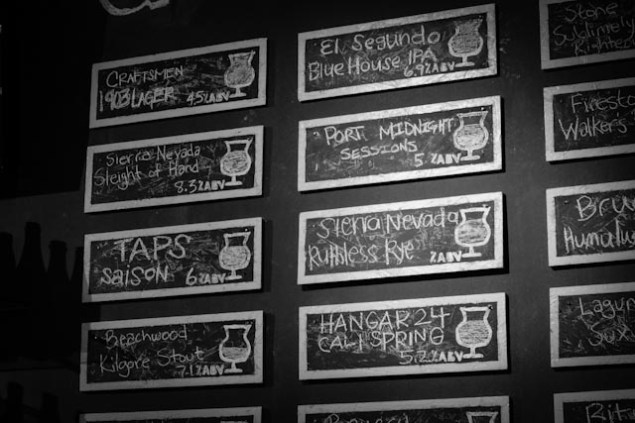 CRAFTSMEN
1903 LAGER 4.5%ABV
Sierra Nevada
Sleight of Hand
8.3%ABV
TAPS
SAISON 6%ABV
Beachwood
Kilgore Stout
7.1%ABV
El Segundo
Blue House IPA
6.9%ABV
PORT MIDNIGHT
SESSIONS
5.%ABV
Sierra Nevada
Ruthless Rye %ABV
HANGAR 24
CALI SPRING
5.2%ABV
Stone
Sublimely
Righteo
Firesto
Walker's
Bru
Humulu
Lagun